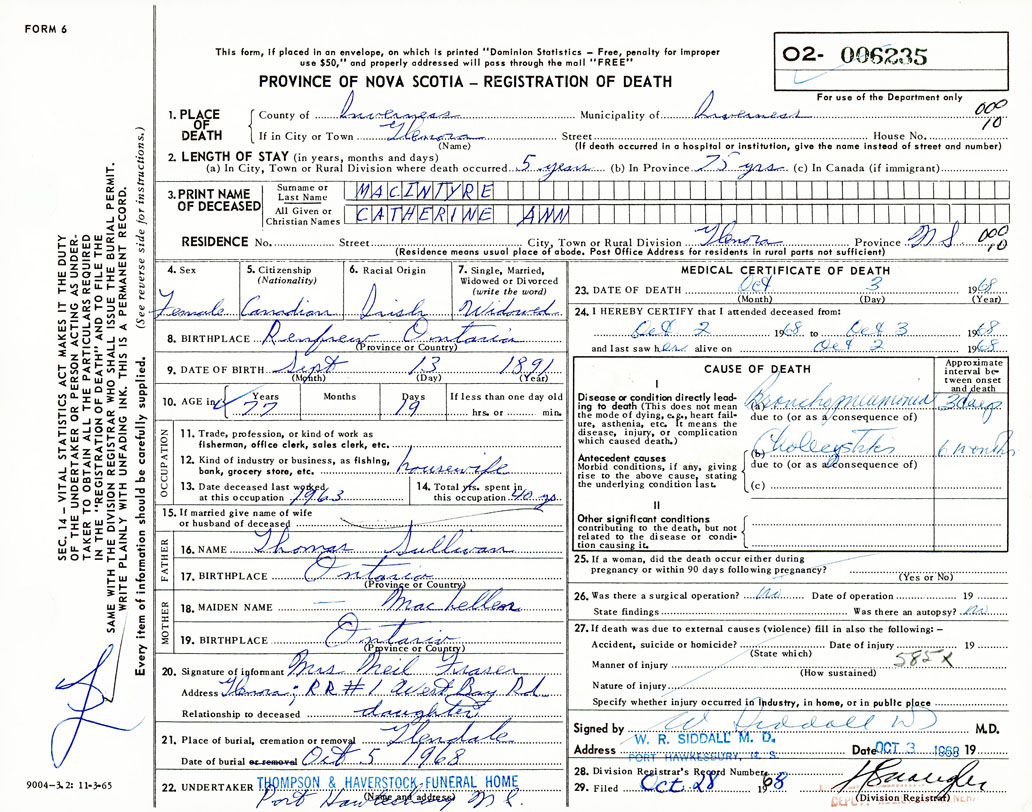 FORM 6
This form, if placed in an envelope, on which is printed "Dominion Statistics – Free, penalty for improper
use $50," and properly addressed will pass through the mail "FREE"
PROVINCE OF NOVA SCOTIA – REGISTRATION OF DEATH
O2- 006235
For use of the Department only
1. PLACE OF DEATH
County of Inverness Municipality of Inverness 000
If in City or Town Glenora Street House No. 10
(Name) (If death occurred in a hospital or institution, give the name instead of street and number)
2. LENGTH OF STAY (in years, months and days)
(a) In City, Town or Rural Division where death occurred 5 years (b) In Province 75 yrs. (c) In Canada (if immigrant)
3. PRINT NAME OF DECEASED
Surname or Last Name MACINTYRE
All Given or Christian Names CATHERINE ANN
RESIDENCE No. Street City, Town or Rural Division Glenora Province N S 000 10
(Residence means usual place of abode. Post Office Address for residents in rural parts not sufficient)
4. Sex Female
5. Citizenship (Nationality) Canadian
6. Racial Origin Irish
7. Single, Married, Widowed or Divorced (write the word) Widowed
8. BIRTHPLACE Renfrew Ontario
(Province or Country)
9. DATE OF BIRTH Sept 13 1891
(Month) (Day) (Year)
10. AGE in Years 77 Months Days 19 If less than one day old
hrs. or min.
OCCUPATION
11. Trade, profession, or kind of work as
fisherman, office clerk, sales clerk, etc.
12. Kind of industry or business, as fishing,
bank, grocery store, etc. housewife
13. Date deceased last worked
at this occupation 1963
14. Total yrs. spent in
this occupation 40 yrs
15. If married give name of wife
or husband of deceased
FATHER
16. NAME Thomas Sullivan
17. BIRTHPLACE Ontario
(Province or Country)
MOTHER
18. MAIDEN NAME — MacLellen
19. BIRTHPLACE Ontario
(Province or Country)
20. Signature of informant Mrs Neil Fraser
Address Glenora; RR #1 West Bay Rd
Relationship to deceased daughter
21. Place of burial, cremation or removal Glendale
Date of burial or removal Oct 5 1968
22. UNDERTAKER THOMPSON & HAVERSTOCK FUNERAL HOME
(Name and address)
Port Hawkesbury N.S.
MEDICAL CERTIFICATE OF DEATH
23. DATE OF DEATH Oct 3 1968
(Month) (Day) (Year)
24. I HEREBY CERTIFY that I attended deceased from:
Oct 2 1968 to Oct 3 1968
and last saw her alive on Oct 2 1968
CAUSE OF DEATH
Approximate interval between onset and death
I
Disease or condition directly leading to death (This does not mean the mode of dying, e.g., heart failure, asthenia, etc. It means the disease, injury, or complication which caused death.)
(a) Bronchopneumonia 3 days
due to (or as a consequence of)
Antecedent causes
Morbid conditions, if any, giving rise to the above cause, stating the underlying condition last.
(b) Cholecystitis 6 months
due to (or as a consequence of)
(c)
II
Other significant conditions
contributing to the death, but not related to the disease or condition causing it.
25. If a woman, did the death occur either during
pregnancy or within 90 days following pregnancy?
(Yes or No)
26. Was there a surgical operation? no Date of operation 19
State findings Was there an autopsy? no
27. If death was due to external causes (violence) fill in also the following: –
Accident, suicide or homicide? Date of injury 19
(State which) 585X
Manner of injury
(How sustained)
Nature of injury
Specify whether injury occurred in industry, in home, or in public place
Signed by W R Siddall M.D.
W. R. SIDDALL M. D.
Address PORT HAWKESBURY, N. S. Date OCT 3 1968 19
28. Division Registrar's Record Number
29. Filed Oct 28 1968
(Division Registrar)
SEC. 14 – VITAL STATISTICS ACT MAKES IT THE DUTY
OF THE UNDERTAKER OR PERSON ACTING AS UNDER-
TAKER TO OBTAIN ALL THE PARTICULARS REQUIRED
IN THE "REGISTRATION OF DEATH" AND TO FILE THE
SAME WITH THE DIVISION REGISTRAR WHO SHALL ISSUE THE BURIAL PERMIT.
WRITE PLAINLY WITH UNFADING INK. THIS IS A PERMANENT RECORD.
Every item of information should be carefully supplied. (See reverse side for instructions.)
9004-3.2: 11-3-65